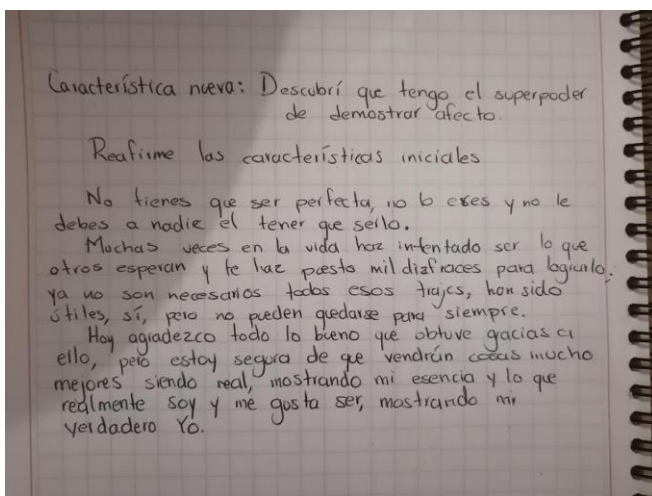 Característica nueva: Descubrí que tengo el superpoder
de demostrar afecto.
Reafirme las características iniciales
No tienes que ser perfecta, no lo eres y no le
debes a nadie el tener que serlo.
Muchas veces en la vida haz intentado ser lo que
otros esperan y te haz puesto mil disfraces para lograrlo,
ya no son necesarios todos esos trajes, han sido
útiles, sí, pero no pueden quedarse para siempre.
Hoy agradezco todo lo bueno que obtuve gacias a
ello, pero estoy segura de que vendrán cosas mucho
mejores siendo real, mostrando mi esencia y lo que
realmente soy y me gusta ser, mostrando mi
verdadero Yo.